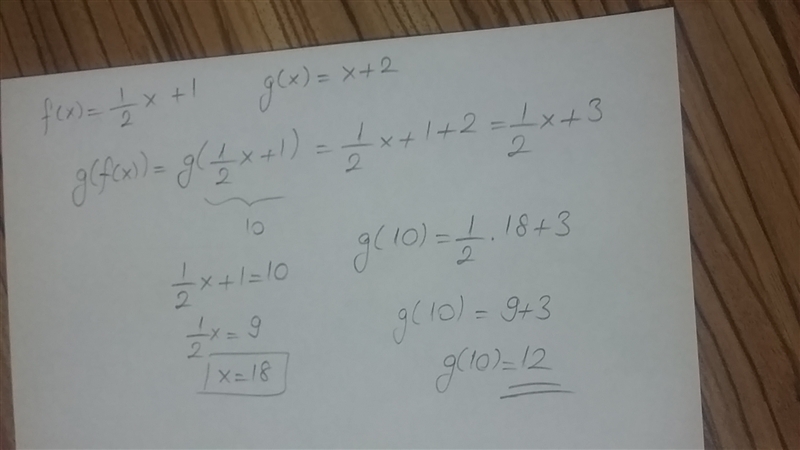 f(x) = 1/2 x + 1    g(x) = x + 2
g(f(x)) = g(1/2 x + 1) = 1/2 x + 1 + 2 = 1/2 x + 3
10
1/2 x + 1 = 10
1/2 x = 9
| x = 18
g(10) = 1/2 . 18 + 3
g(10) = 9 + 3
g(10) = 12